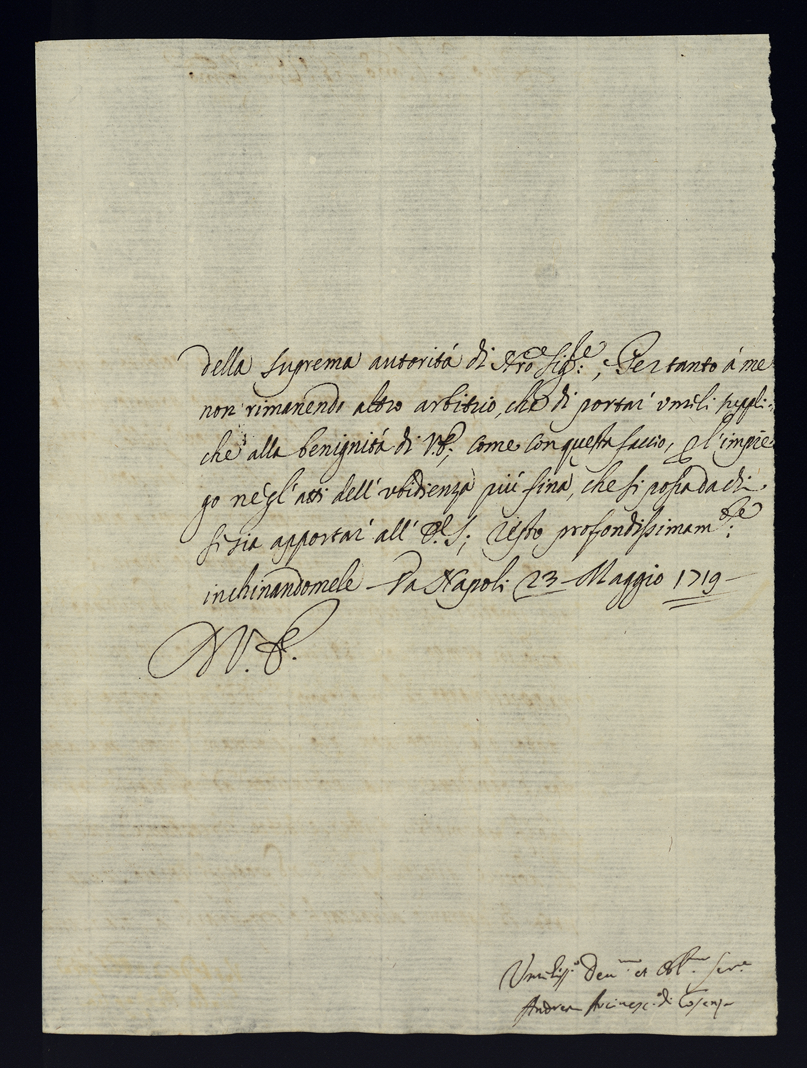 della suprema autorità di Nro Sigre: ; Per tanto à me
non rimanendo altro arbitrio, che di portar' umili suppli:
che alla benignità di V.E; come con questa faccio, p l'impie
go negl'atti dell'ubidienza più fina, che si possa da chi
si sia apportar' all' E.S; resto profondissimamte:
inchinandomele — Da Napoli 23 Maggio 1719 —
D V.E.
Umiliss.o Deu.mo et Obl.mo Ser.e
Andrea Arcivesc.o di Cosenza